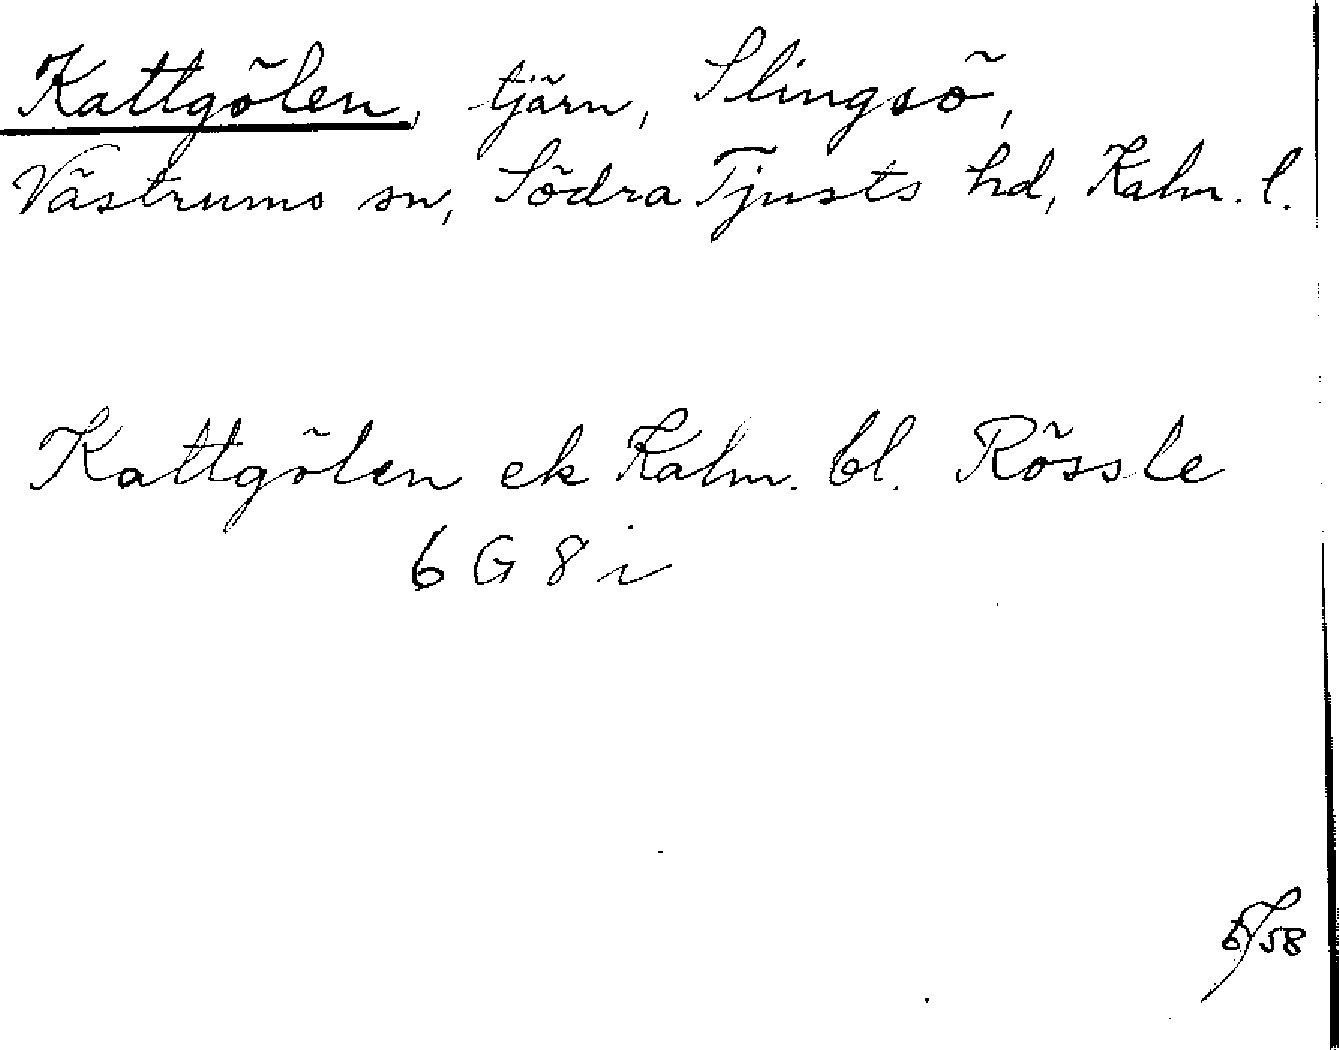 Kattgölen, tjärn, Slingsö,
Västrums sn, Södra Tjusts hd, Kalm. l.
Kattgölen ek Kalm. bl. Rössle
6 G 8 i